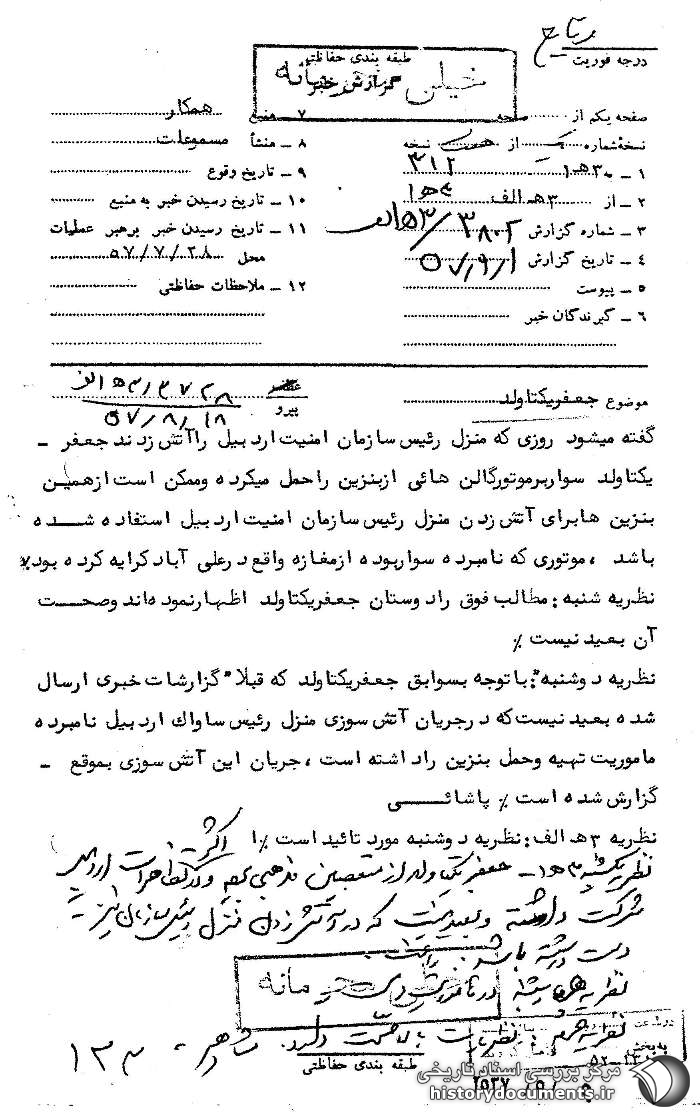 درجه فوریت
طبقه بندی حفاظتی
گزارش خبر
خیلی محرمانه
صفحه یکم از صفحه
نسخهٔ شماره از نسخه
۱ - به ۳۰هـ ۳۱۲
۲ - از ۳هـ الف
۳ - شماره گزارش ۳۸۰۲/۵۳الف
۴ - تاریخ گزارش ۵۷/۹/۱
۵ - پیوست
۶ - گیرندگان خبر
۷ - منبع همکار
۸ - منشأ مسموعات
۹ - تاریخ وقوع
۱۰ - تاریخ رسیدن خبر به منبع
۱۱ - تاریخ رسیدن خبر برهبر عملیات
محل ۵۷/۷/۲۸
۱۲ - ملاحظات حفاظتی
موضوع جعفریکتاولد
پیرو
۵۷/۸/۱۸
گفته میشود روزی که منزل رئیس سازمان امنیت اردبیل راآتش زدند جعفر -
یکتاولد سواربرموتورگالن هائی ازبنزین راحمل میکرده وممکن است ازهمین
بنزین هابرای آتش زدن منزل رئیس سازمان امنیت اردبیل استفاده شده
باشد ، موتوری که نامبرده سواربوده ازمغازه واقع درعلی آبادکرایه کرده بود٪
نظریه شنبه : مطالب فوق رادوستان جعفریکتاولد اظهارنموده اند وصحت
آن بعید نیست ٪
نظریه دوشنبه": باتوجه بسوابق جعفریکتاولد که قبلا" گزارشات خبری ارسال
شده بعید نیست که درجریان آتش سوزی منزل رئیس ساواک اردبیل نامبرده
ماموریت تهیه وحمل بنزین راداشته است ، جریان این آتش سوزی بموقع -
گزارش شده است ٪ پاشائی
نظریه ۳هـ الف : نظریه دوشنبه مورد تائید است ٪
نظریه یکشنبه - جعفر یکتاولد از متعصبین مذهبی و در اکثر تظاهرات اردبیل
شرکت داشته و بعید نیست که در آتش زدن منزل رئیس سازمان نیز -
دست داشته باشد.
خیلی محرمانه
نظریه
نظریه جمعه : نظریات صحت دارد.
طبقه بندی حفاظتی
۱۳۴
۲۵۳۷
مرکز بررسی اسناد تاریخی
historydocuments.ir